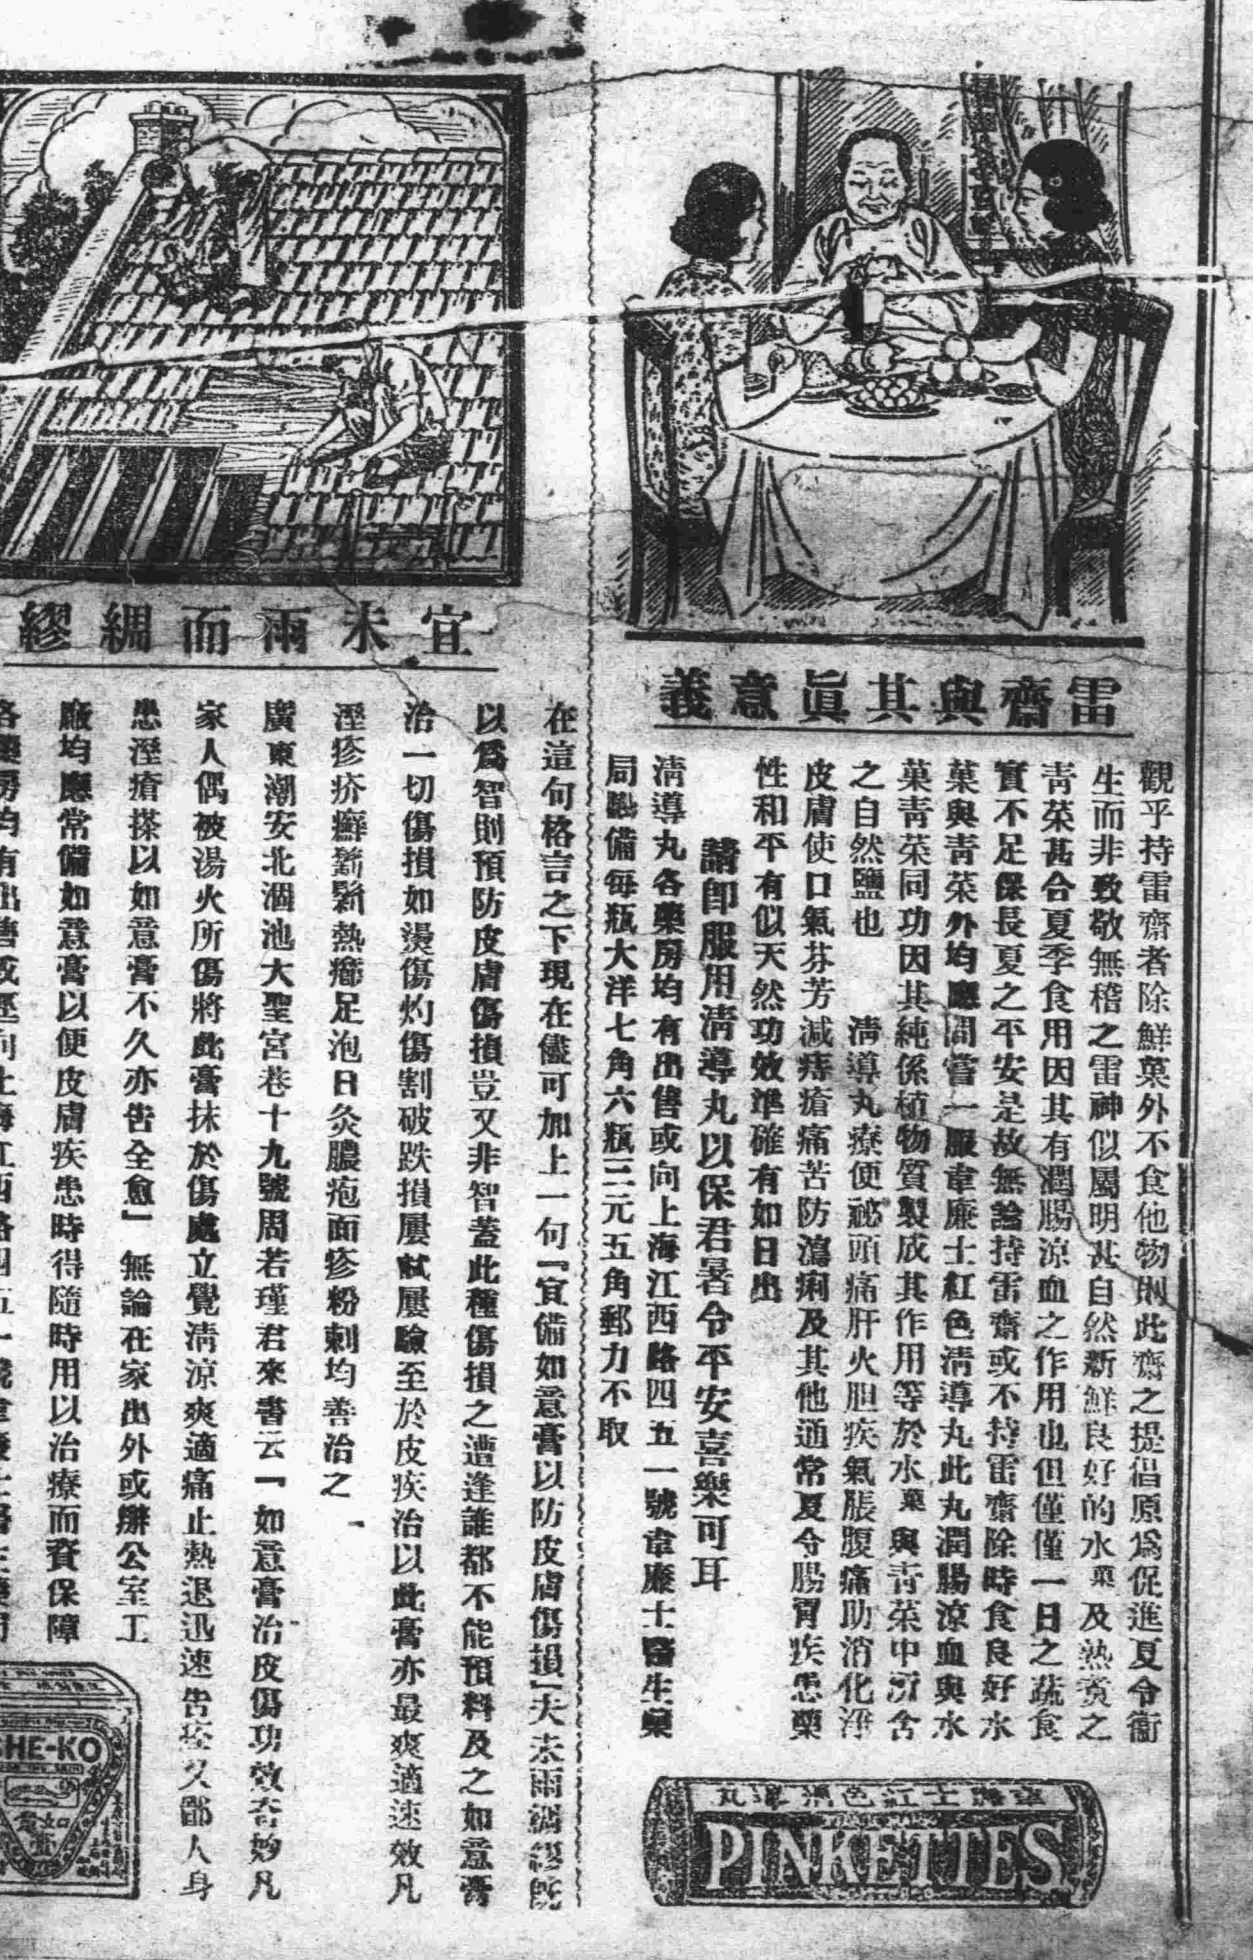 雷齋與其眞意義
觀乎持雷齋者除鮮菓外不食他物則此齋之提倡原爲促進夏令衞
生而非致敬無稽之雷神似屬明甚自然新鮮良好的水菓及熱煑之
靑菜甚合夏季食用因其有潤腸涼血之作用也但僅僅一日之蔬食
實不足保長夏之平安是故無論持雷齋或不持雷齋除時食良好水
菓與靑菜外均應間嘗一服韋廉士紅色淸導丸此丸潤腸涼血與水
菓靑菜同功因其純係植物質製成其作用等於水菓與靑菜中所含
之自然鹽也 淸導丸療便祕頭痛肝火胆疾氣脹腹痛助消化淨
皮膚使口氣芬芳減痔瘡痛苦防瀉痢及其他通常夏令腸胃疾患藥
性和平有似天然功效準確有如日出
請卽服用淸導丸以保君暑令平安喜樂可耳
淸導丸各藥房均有出售或向上海江西路四五一號韋廉士醫生藥
局函備每瓶大洋七角六瓶三元五角郵力不取
韋廉士紅色淸導丸
PINKETTES
宜未雨而綢繆
在這句格言之下現在儘可加上一句「宜備如意膏以防皮膚傷損」夫未雨綢繆旣
以爲智則預防皮膚傷損豈又非智蓋此種傷損之遭逢誰都不能預料及之如意膏
治一切傷損如燙傷灼傷割破跌損屢試屢驗至於皮疾治以此膏亦最爽適速效凡
溼疹疥癬熱癤足泡日灸膿疱面疹粉刺均善治之
廣東潮安北涸池大聖宮巷十九號周若瑾君來書云「如意膏治皮傷功效奇妙凡
家人偶被湯火所傷將此膏抹於傷處立覺淸涼爽適痛止熱退迅速告痊又鄙人身
患溼瘡搽以如意膏不久亦告全愈」無論在家出外或辦公室工
廠均應常備如意膏以便皮膚疾患時得隨時用以治療而資保障
各藥房均有出售或逕向上海江西路四五一號韋廉士醫生藥局
SHE-KO
FOR THE SKIN
如意膏